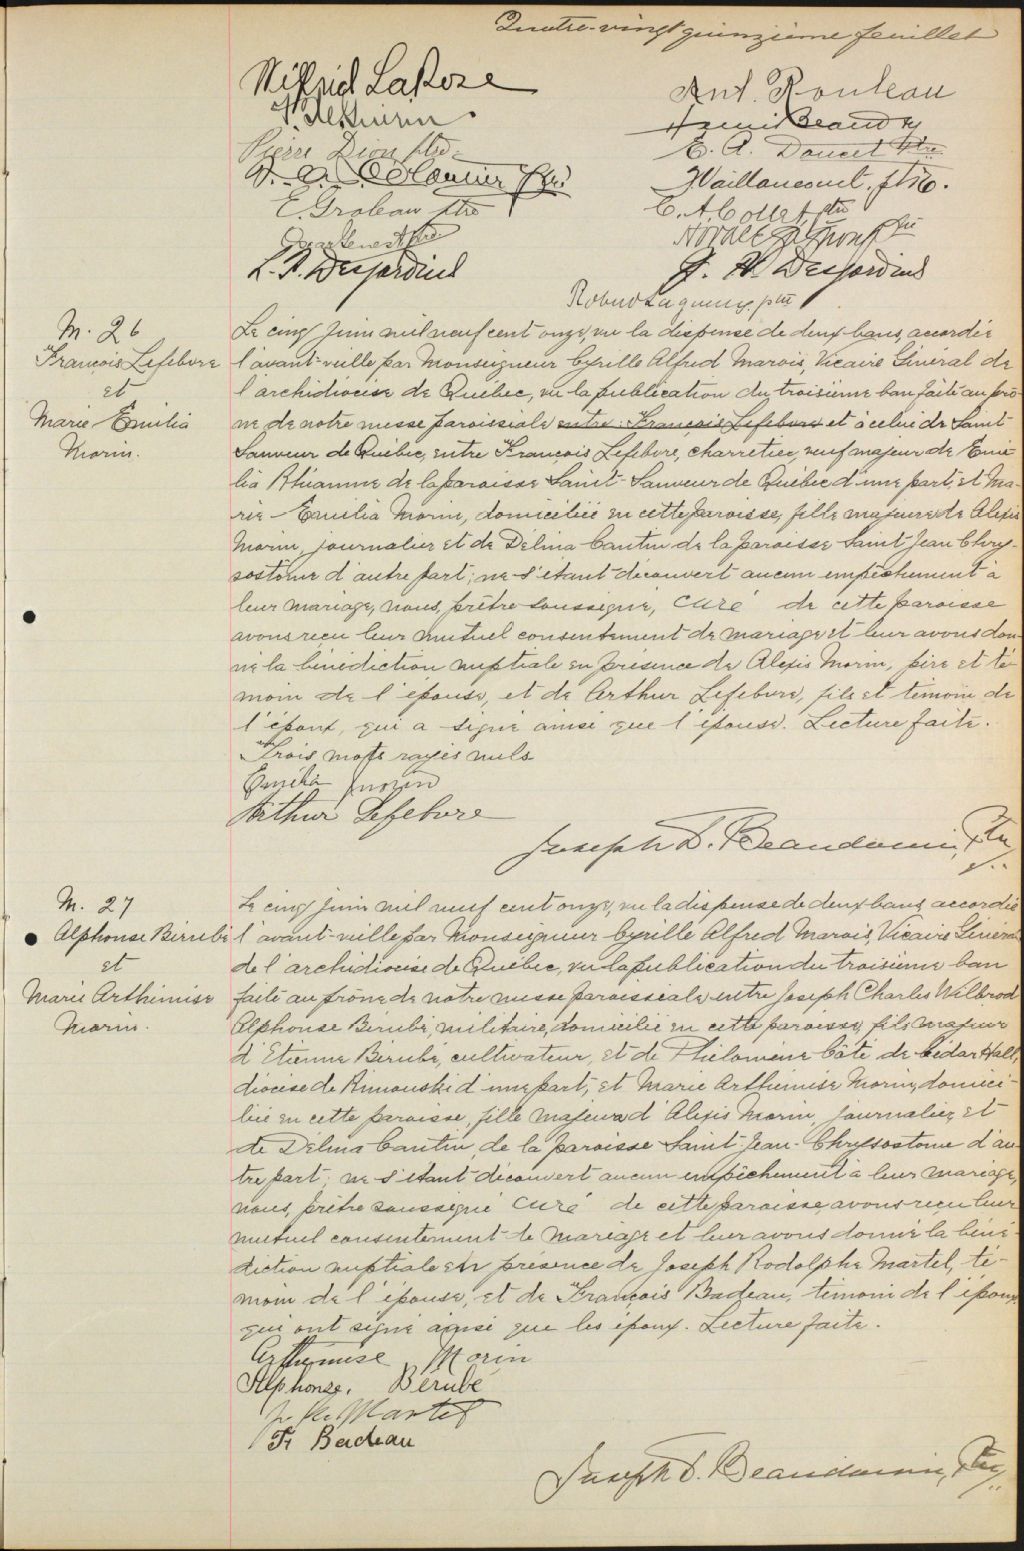 Quatre-vingt quinzième feuillet
Wilfrid LaRose
Ant. Rouleau
Henri Beaudry
Pierre Dion ptre
E. A. Doucet Ptre
Vaillancourt, ptre.
E. Groleau ptre
C. A. Collet, ptre
Oscar Genest ptre
L. P. Desjardins
J. H. Desjardins
M. 26
François Lefebvre
et
Marie Emilia
Morin.
Le cinq juin mil neuf cent onze, vu la dispense de deux bans accordée
l'avant-veille par Monseigneur Cyrille Alfred Marois, Vicaire Général de
l'archidiocèse de Québec, vu la publication du troisième ban faite au prô-
ne de notre messe paroissiale entre François Lefebvre et à celui de Saint
Sauveur de Québec, entre François Lefebvre, charretier, veuf majeur de Emé-
lia Rhéaume de la paroisse Saint-Sauveur de Québec d'une part, et Ma-
rie-Emilia Morin, domiciliée en cette paroisse, fille majeure de Alexis
Morin, journalier et de Délina Cantin de la paroisse Saint Jean Chry-
sostôme d'autre part; ne s'étant découvert aucun empêchement à
leur mariage, nous, prêtre soussigné, curé de cette paroisse
avons reçu leur mutuel consentement de mariage et leur avons don-
né la bénédiction nuptiale en présence de Alexis Morin, père et té-
moin de l'épouse, et de Arthur Lefebvre, fils et témoin de
l'époux, qui a signé ainsi que l'épouse. Lecture faite.
Trois mots rayés nuls
Emélia Morin
Arthur Lefebvre
Joseph D. Beaudouin, Ptre
M. 27
Alphonse Bérubé
et
Marie Arthémise
Morin.
Le cinq juin mil neuf cent onze, vu la dispense de deux bans accordée
l'avant-veille par Monseigneur Cyrille Alfred Marois, Vicaire Général
de l'archidiocèse de Québec, vu la publication du troisième ban
faite au prône de notre messe paroissiale entre Joseph Charles Wilbrod
Alphonse Bérubé, militaire, domicilié en cette paroisse, fils majeur
d'Etienne Bérubé, cultivateur, et de Philomène Côté de Cedar Hall,
diocèse de Rimouski d'une part, et Marie Arthémise Morin, domici-
liée en cette paroisse, fille majeure d'Alexis Morin, journalier, et
de Délima Cantin, de la paroisse Saint-Jean-Chrysostome d'au-
tre part; ne s'étant découvert aucun empêchement à leur mariage,
nous, prêtre soussigné curé de cette paroisse, avons reçu leur
mutuel consentement de mariage et leur avons donné la béné-
diction nuptiale en présence de Joseph Rodolphe Martel, té-
moin de l'épouse, et de François Badeau, témoin de l'époux,
qui ont signé ainsi que les époux. Lecture faite.
Arthémise Morin
Alphonse. Bérubé
J. R. Martel
Fr Badeau
Joseph D. Beaudouin, Ptre